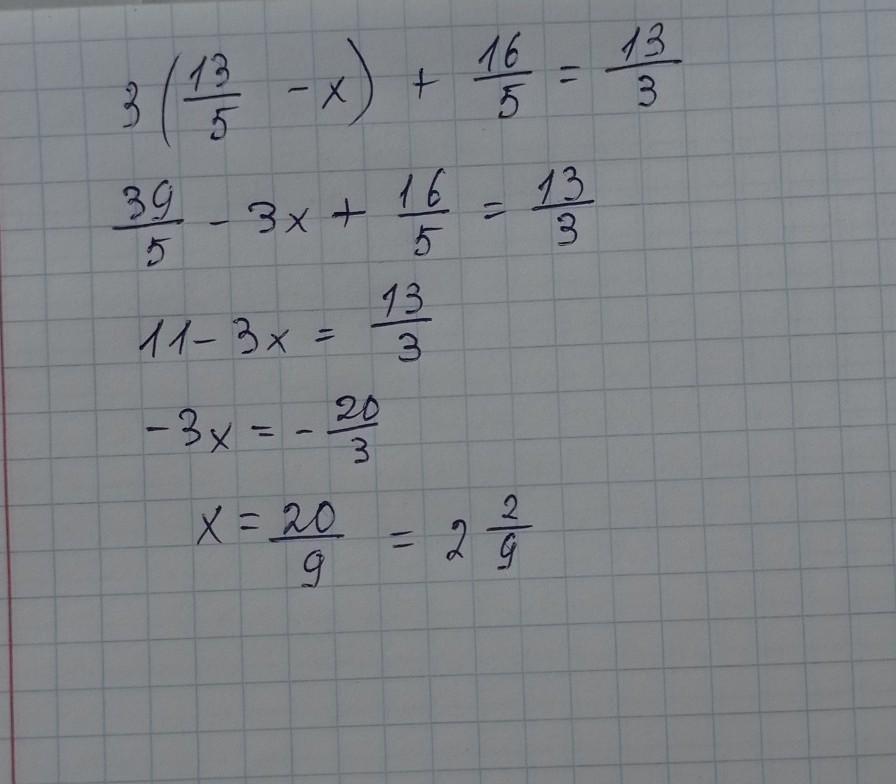 3(13/5 - x) + 16/5 = 13/3
39/5 - 3x + 16/5 = 13/3
11 - 3x = 13/3
-3x = -20/3
x = 20/9 = 2 2/9